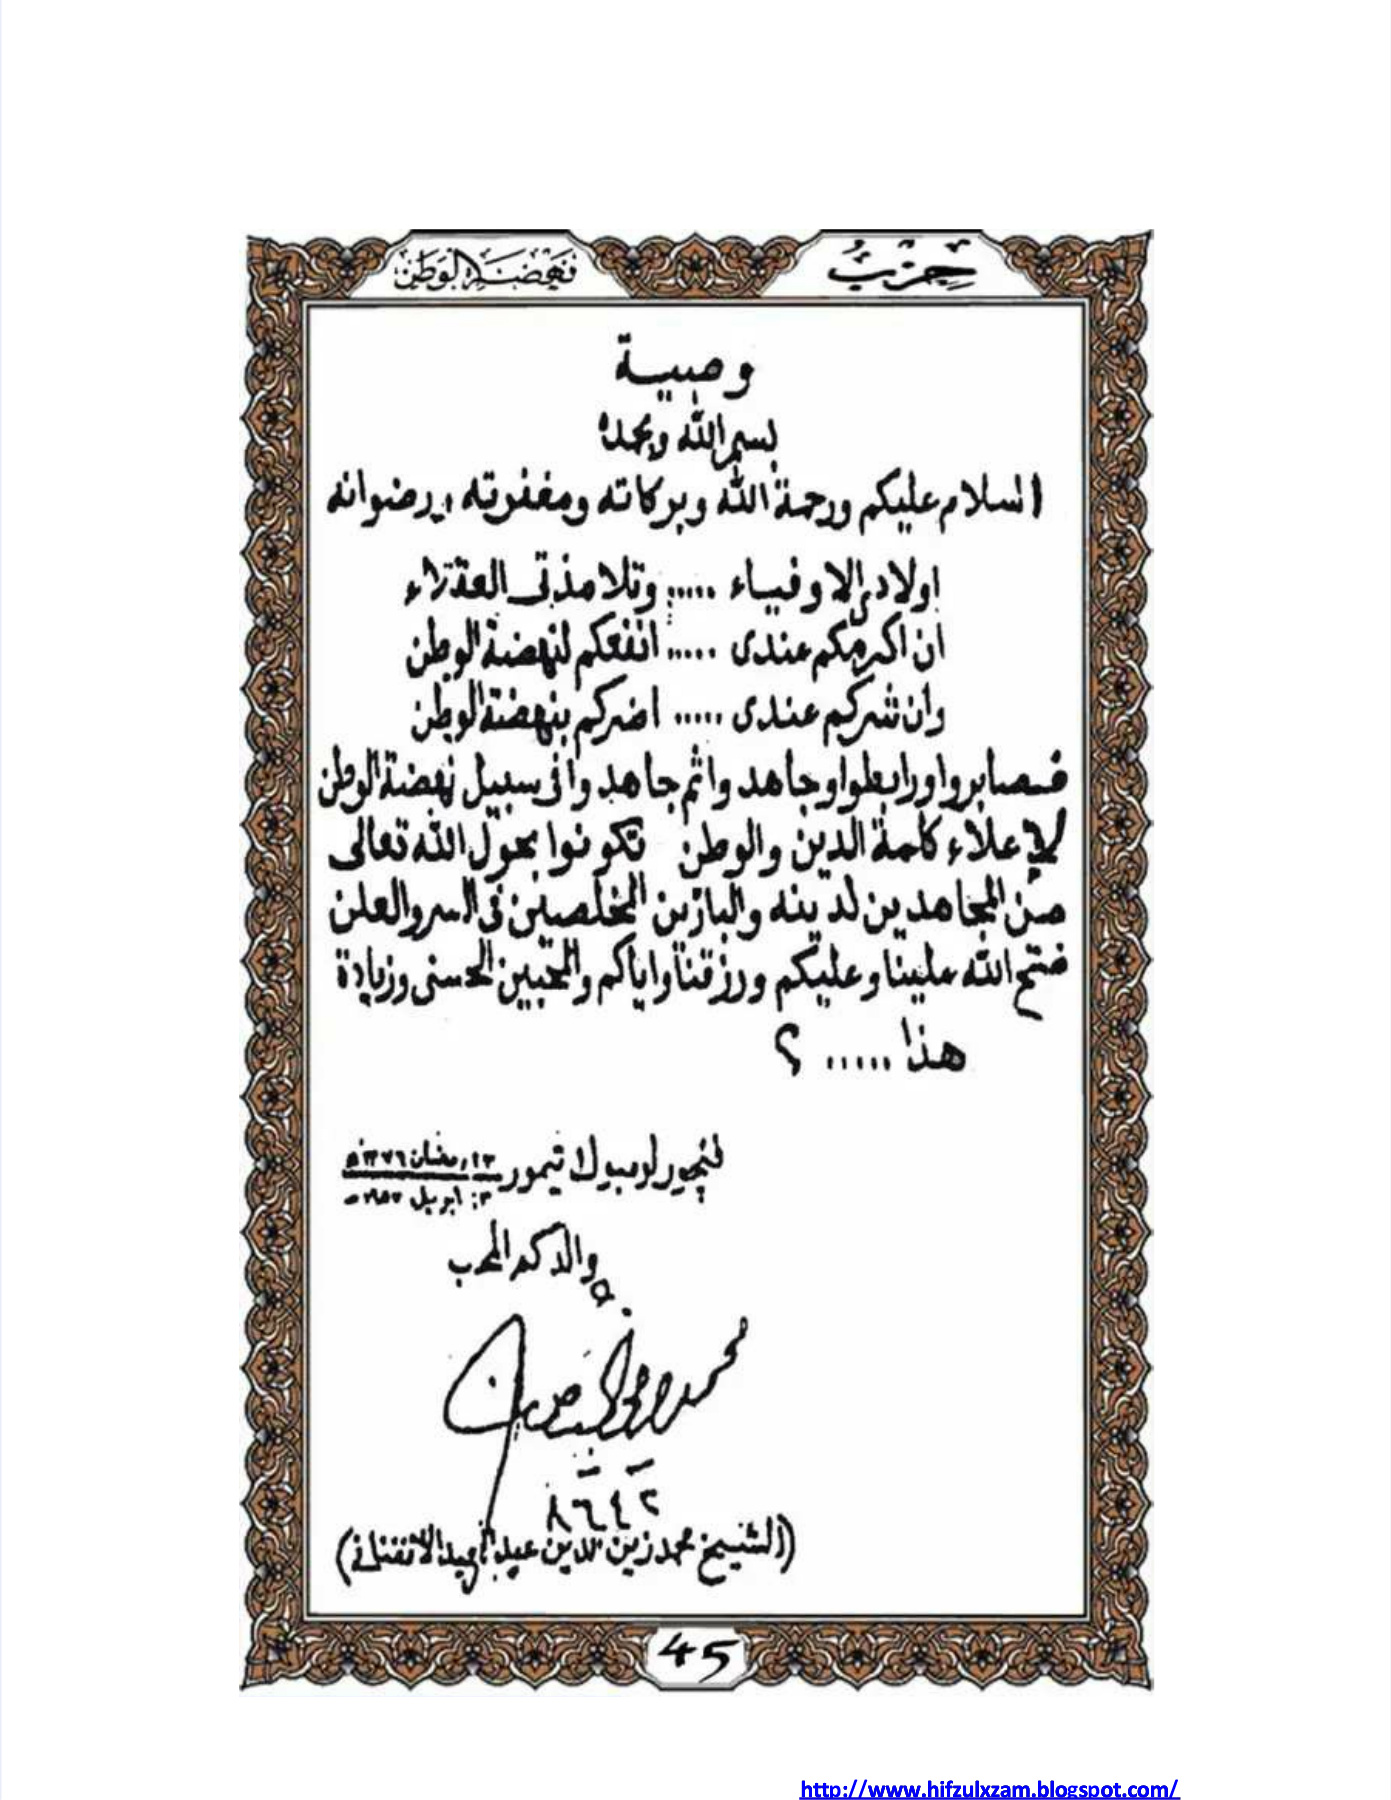 حِزْبُ نَهْضَةِ الْوَطَنِ
وصية
بسم الله وبحمده
السلام عليكم ورحمة الله وبركاته ومغفرته ورضوانه
اولادى الاوفياء ..... وتلامذتى العقلاء
ان اكرمكم عندى ..... انفعكم لنهضة الوطن
وان شركم عندى ..... اضركم بنهضة الوطن
فصابروا ورابطوا وجاهدوا ثم جاهدوا فى سبيل نهضة الوطن
لإعلاء كلمة الدين والوطن تكونوا بحول الله تعالى
من المجاهدين لدينه والبارّين المخلصين فى السر والعلن
فتح الله علينا وعليكم ورزقنا واياكم والمحبين الحسنى وزيادة
هذا ..... ؟
فنچور لومبوك تيمور رمضان ١٣٧٦ه
ابريل
والدكم المحب
٨٦٤٢
(الشيخ محمد زين الدين عبد المجيد الانفناني)
45
http://www.hifzulxzam.blogspot.com/